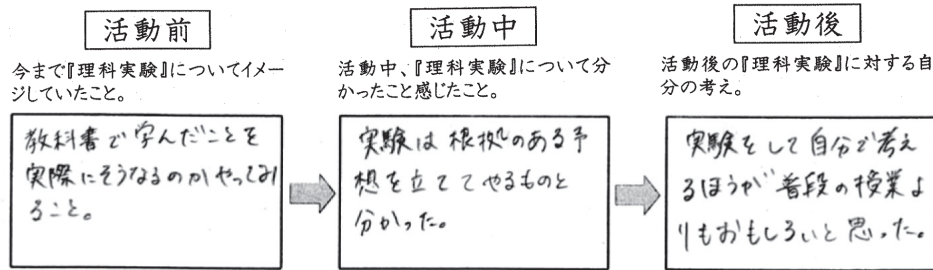 活動前
今まで『理科実験』についてイメー
ジしていたこと。
教科書で学んだことを
実際にそうなるのかやってみ
ること。
活動中
活動中、『理科実験』について分
かったこと感じたこと。
実験は根拠のある予
想を立ててやるものと
分かった。
活動後
活動後の『理科実験』に対する自
分の考え。
実験をして自分で考え
るほうが普段の授業よ
りもおもしろいと思った。